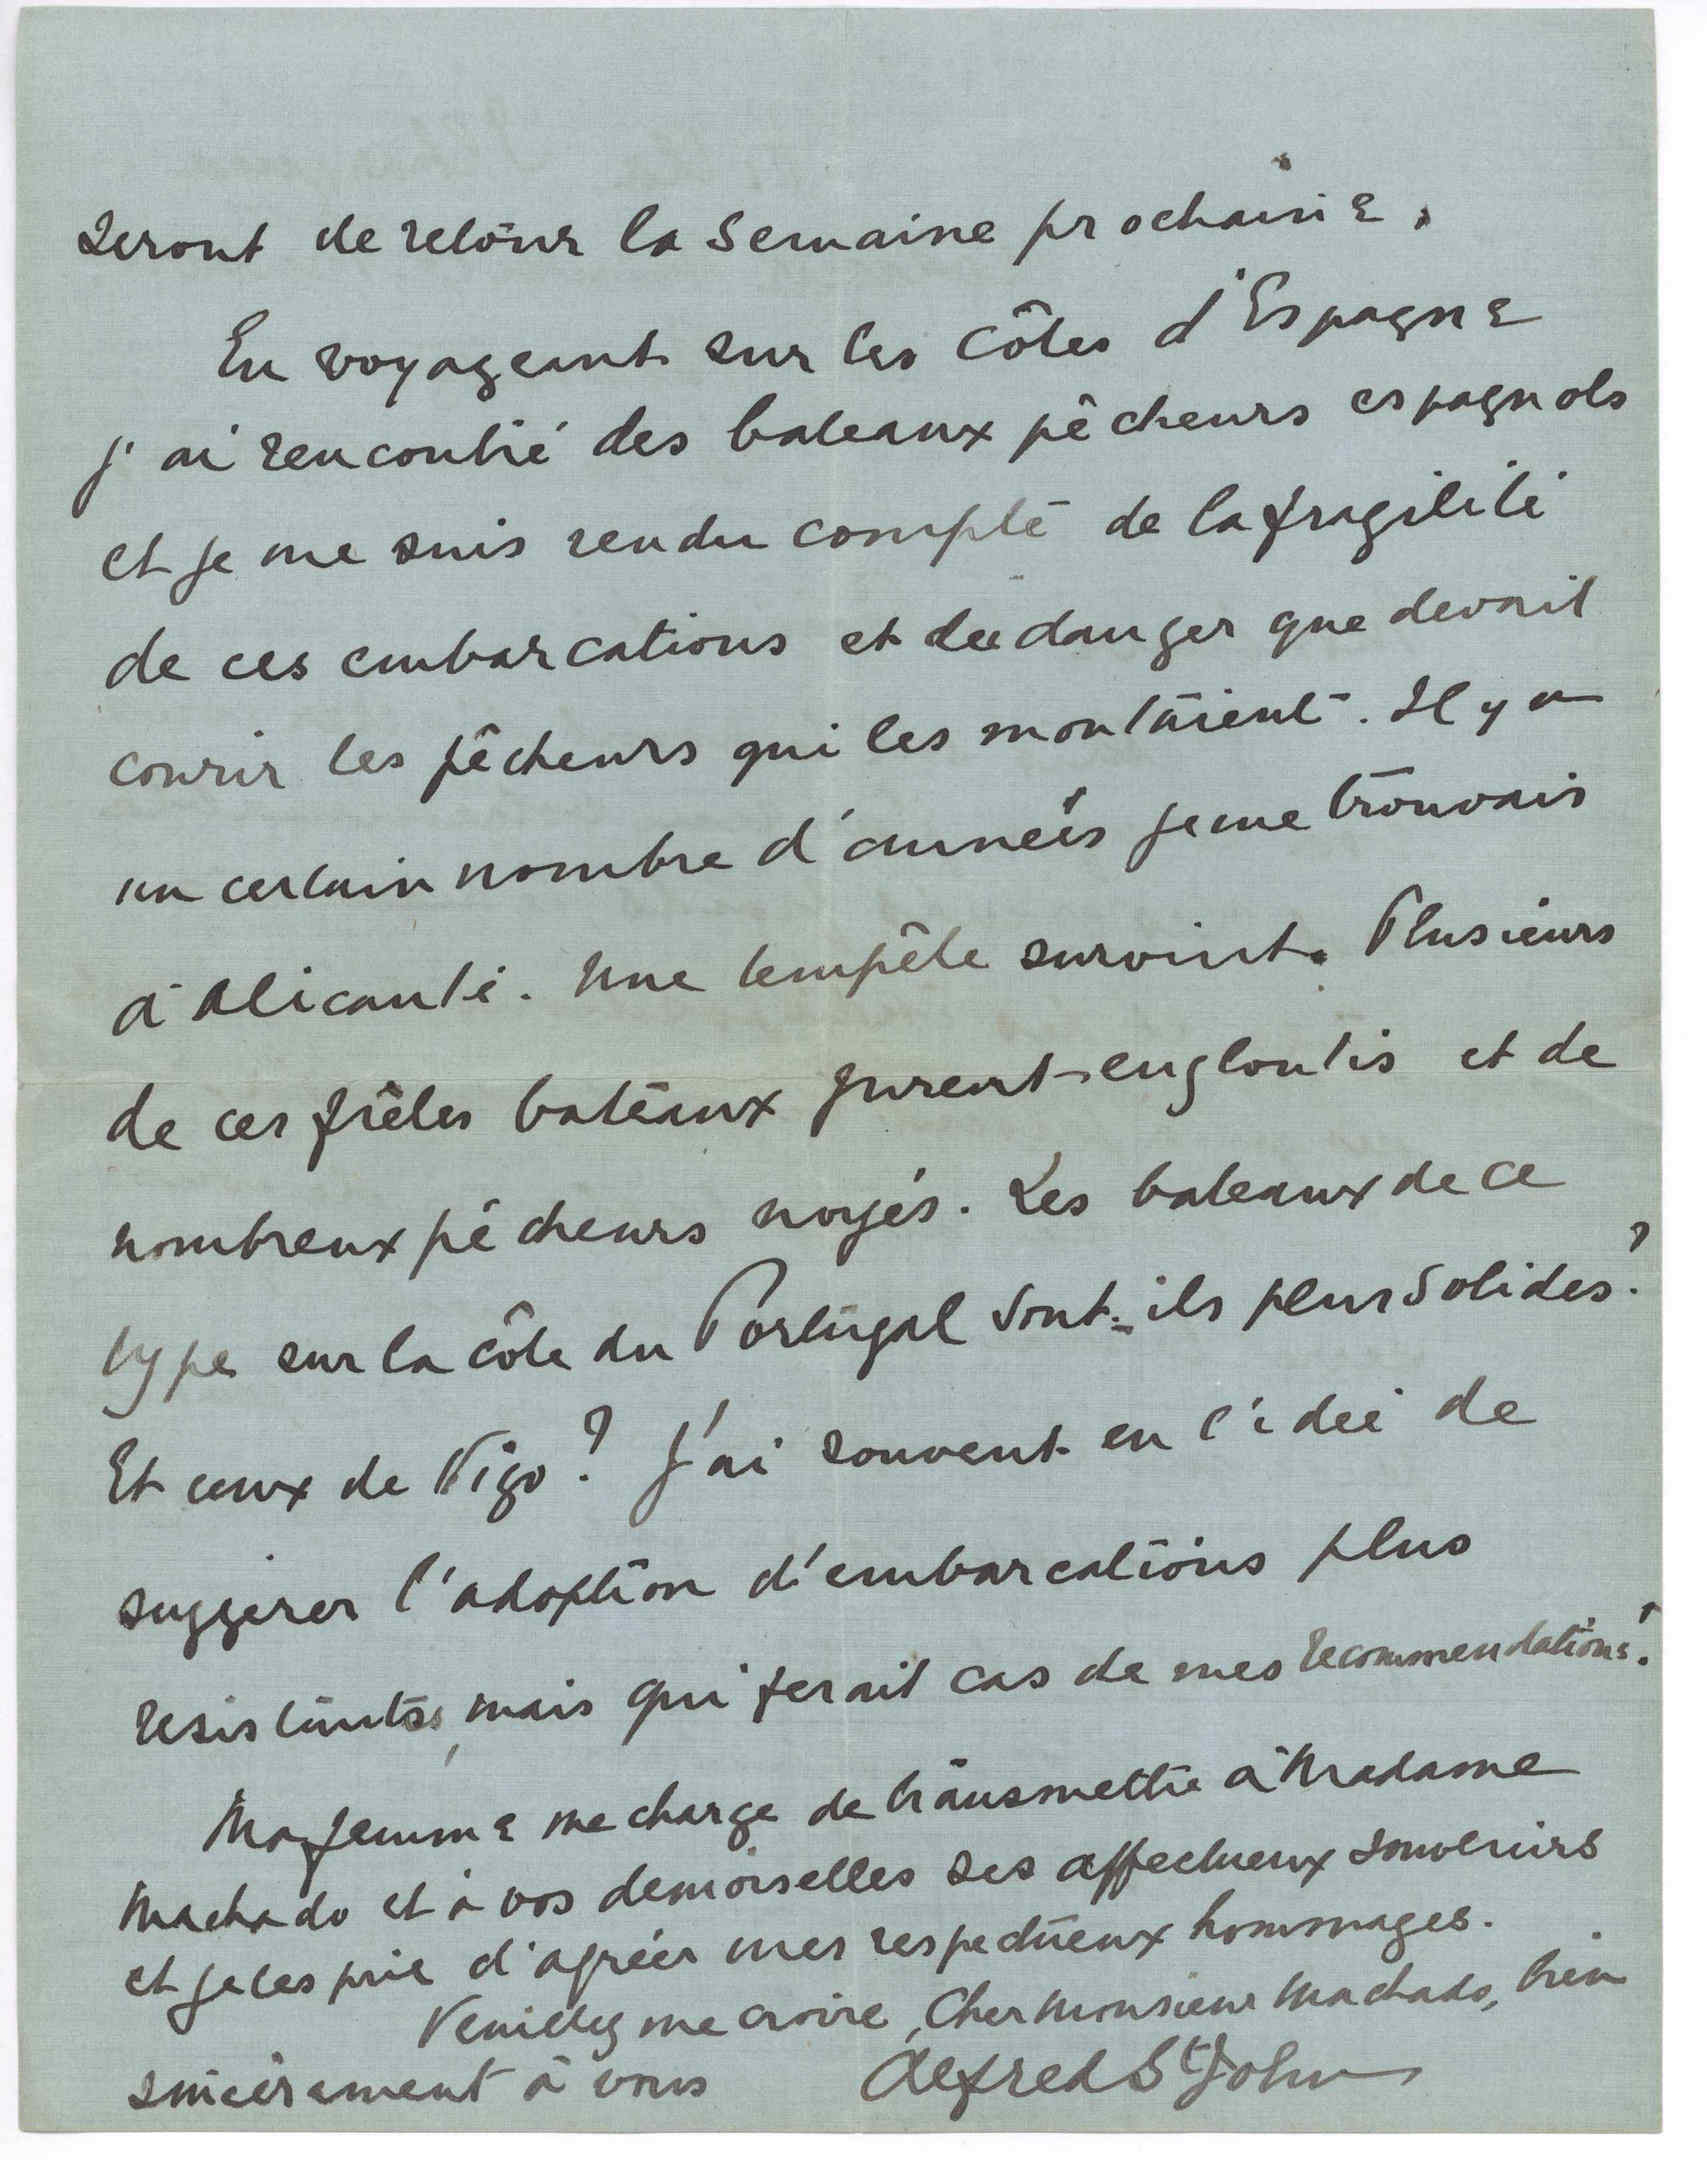 seront de retour la semaine prochaine.
En voyageant sur les côtes d'Espagne
j'ai rencontré des bateaux pêcheurs espagnols
et je me suis rendu compte de la fragilité
de ces embarcations et du danger que devait
courir les pêcheurs qui les montaient. Il y a
un certain nombre d'années je me trouvais
à Alicante. Une tempête survint. Plusieurs
de ces frêles bateaux furent engloutis et de
nombreux pêcheurs noyés. Les bateaux de ce
type sur la côte du Portugal sont-ils plus solides?
Et ceux de Vigo? J'ai souvent eu l'idée de
suggerer l'adoption d'embarcations plus
resistants, mais qui ferait cas de mes recommendations?
Ma femme me charge de transmettre à Madame
Machado et à vos demoiselles ses affectueux souvenirs
et je les prie d'agréer mes respectueux hommages.
Veuillez me croire, Cher Monsieur Machado, bien
sincèrement à vous Alfred St John